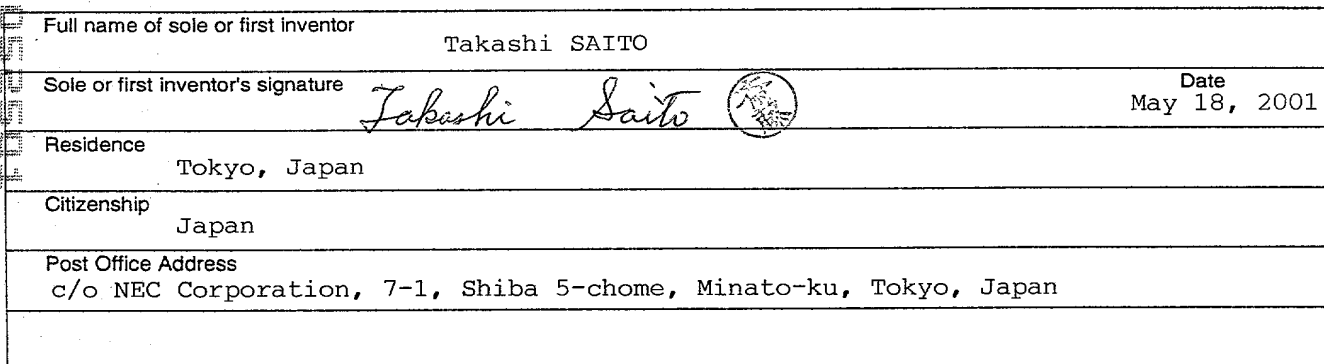 Full name of sole or first inventor
Takashi SAITO
Sole or first inventor's signature
Takashi Saito
Date
May 18, 2001
Residence
Tokyo, Japan
Citizenship
Japan
Post Office Address
c/o NEC Corporation, 7-1, Shiba 5-chome, Minato-ku, Tokyo, Japan